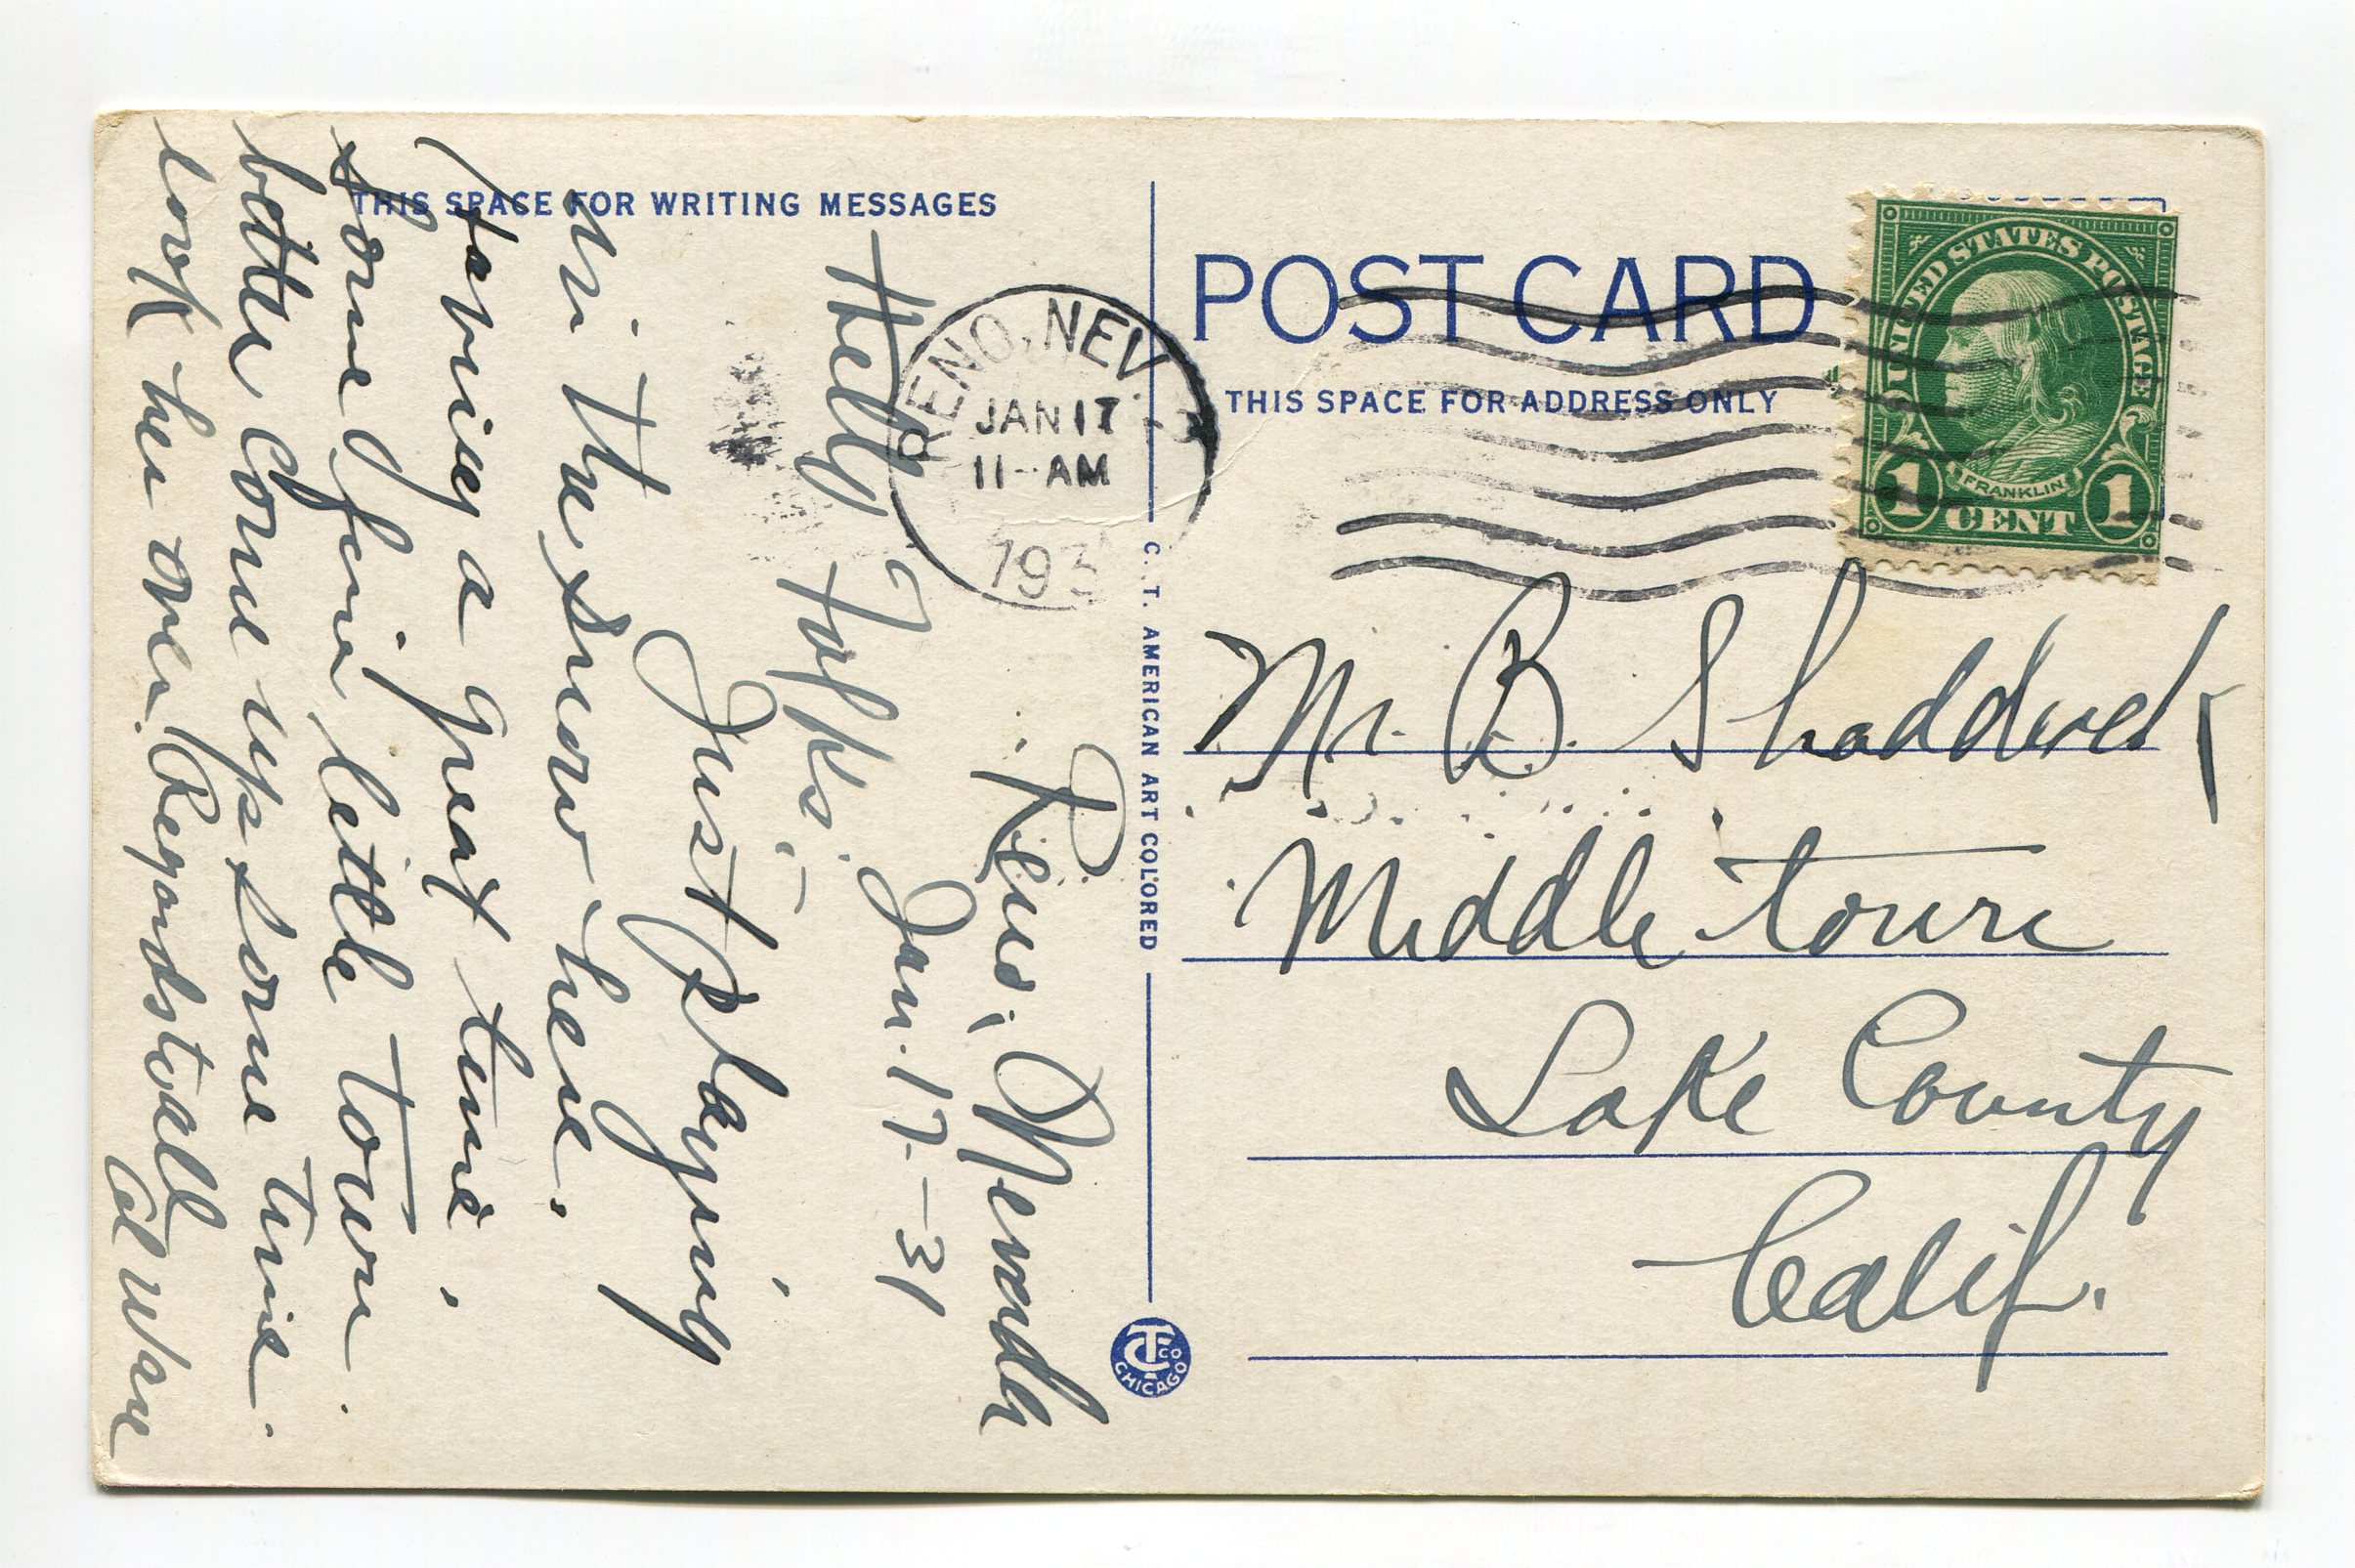 THIS SPACE FOR WRITING MESSAGES
Reno, Nevada
Jan. 17-31
Hello Folks:-
Just playing
in the snow here.
Having a great time.
Some fine little town
better come up some time
look her over. Regards to all
Al Ware
RENO, NEV.
JAN 17
11-AM
193
C. T. AMERICAN ART COLORED
CTCO
CHICAGO
POST CARD
THIS SPACE FOR ADDRESS ONLY
UNITED STATES POSTAGE
FRANKLIN
1 CENT 1
Mr. B. Shadduck
Middletown
Lake County
Calif.